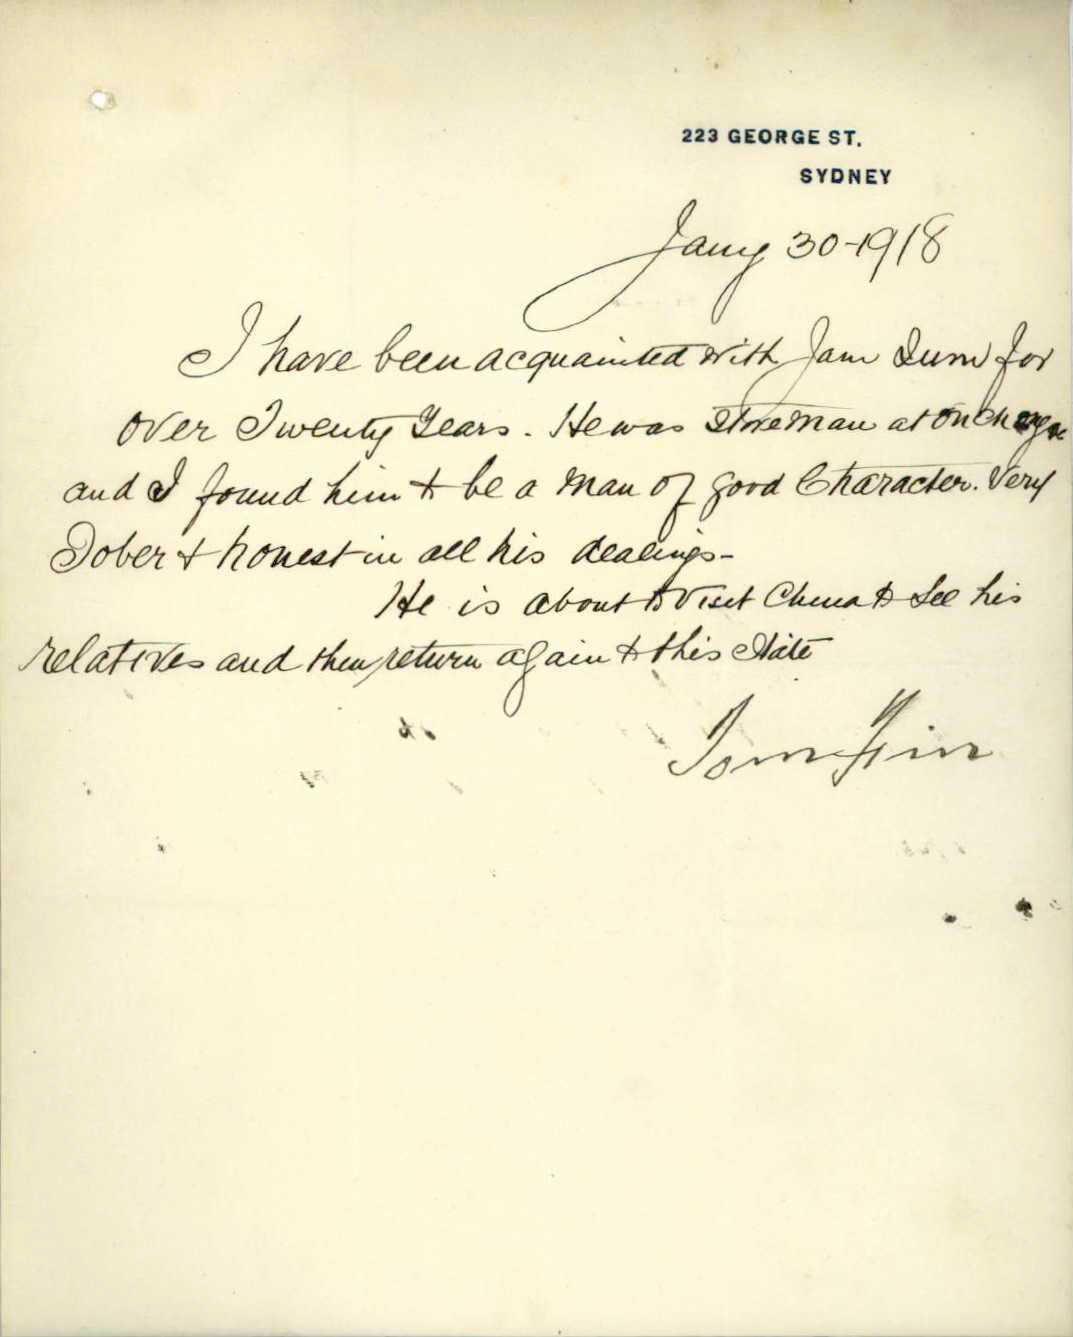 223 GEORGE ST.
SYDNEY
Jany 30-1918
I have been acquainted with Jam for
over Twenty Years. He was Storeman at On
and I found him to be a man of good Character. Very
Sober & honest in all his dealings-
He is about to visit China to See his
relatives and then return again to this State
Tom